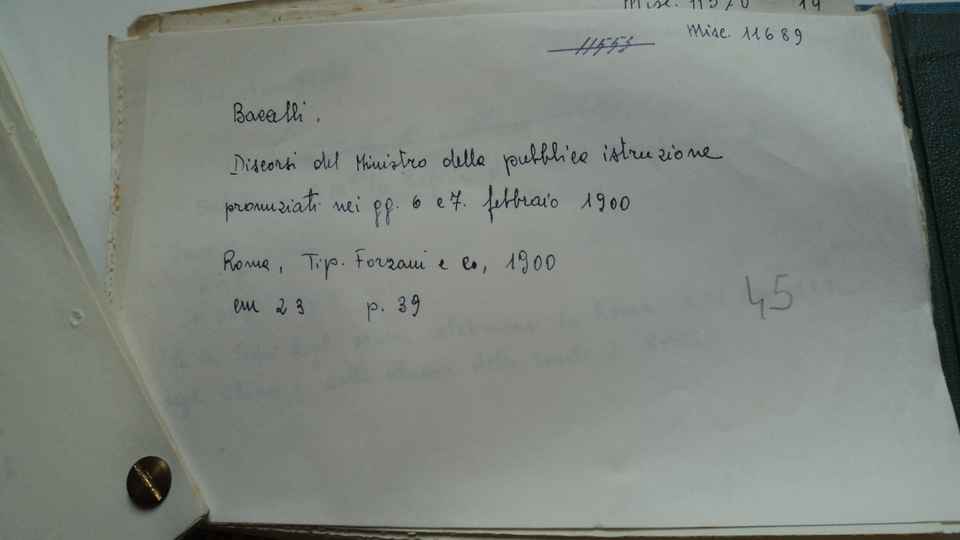 Misc. 11570 19
Misc. 11689
11555
Bacelli.
Discorsi del Ministro della pubblica istruzione
pronuziati nei gg. 6 e 7. febbraio 1900
Roma, Tip. Forzani e co, 1900
cm 23 p. 39
45